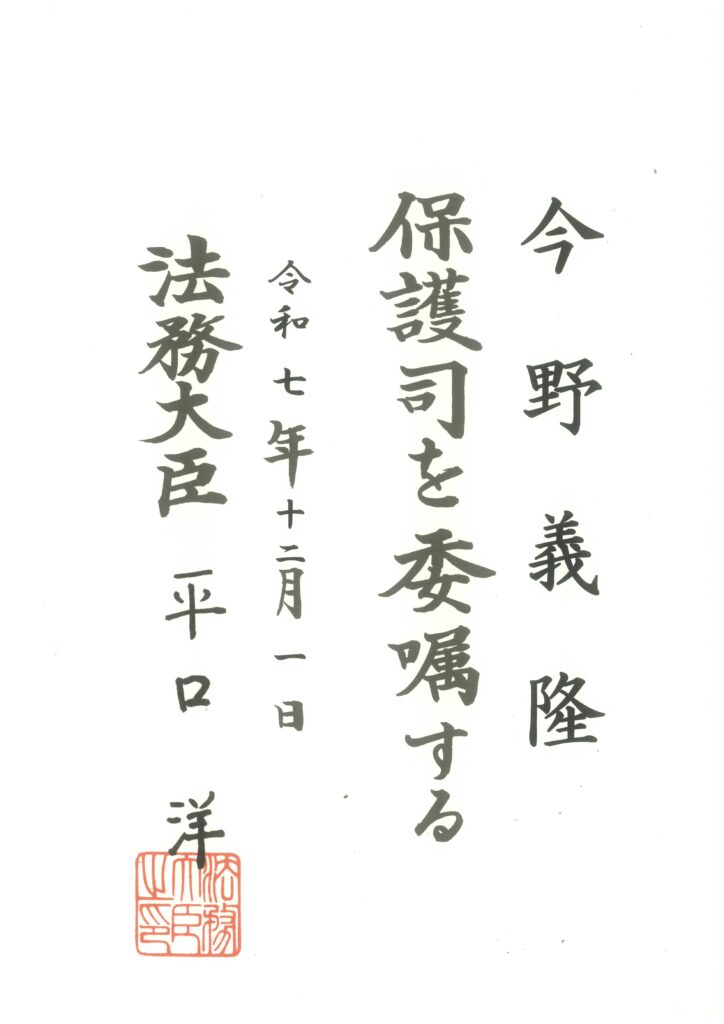 今野義隆
保護司を委嘱する
令和七年十二月一日
法務大臣 平口 洋
法務大臣之印